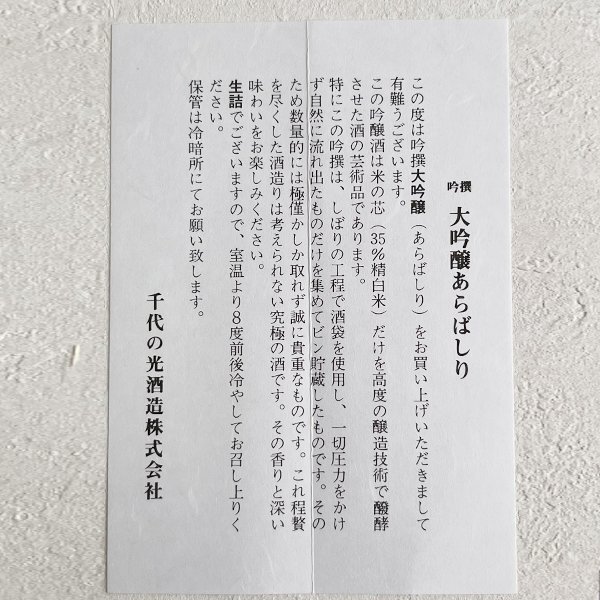 吟撰 大吟醸あらばしり
この度は吟撰大吟醸（あらばしり）をお買い上げいただきまして
有難うございます。
この吟醸酒は米の芯（35％精白米）だけを高度の醸造技術で醱酵
させた酒の芸術品であります。
特にこの吟撰は、しぼりの工程で酒袋を使用し、一切圧力をかけ
ず自然に流れ出たものだけを集めてビン貯蔵したものです。その
ため数量的には極僅かしか取れず誠に貴重なものです。これ程贅
を尽くした酒造りは考えられない究極の酒です。その香りと深い
味わいをお楽しみください。
生詰でございますので、室温より8度前後冷やしてお召し上りく
ださい。
保管は冷暗所にてお願い致します。
千代の光酒造株式会社